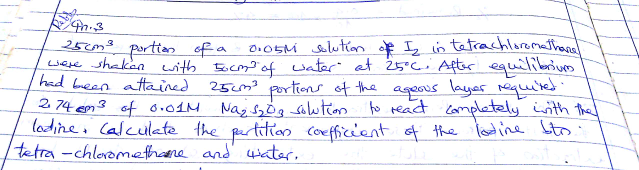 Qn.3
25cm³ portion of a 0.05M solution of I₂ in tetrachloromethane
were shaken with 50cm³ of water at 25°C. After equilibrium
had been attained 25cm³ portions of the aqeous layer required
2.74cm³ of 0.01M Na₂S₂O₃ solution to react completely with the
Iodine. Calculate the partition coefficient of the Iodine btn
tetra-chloromethane and water.